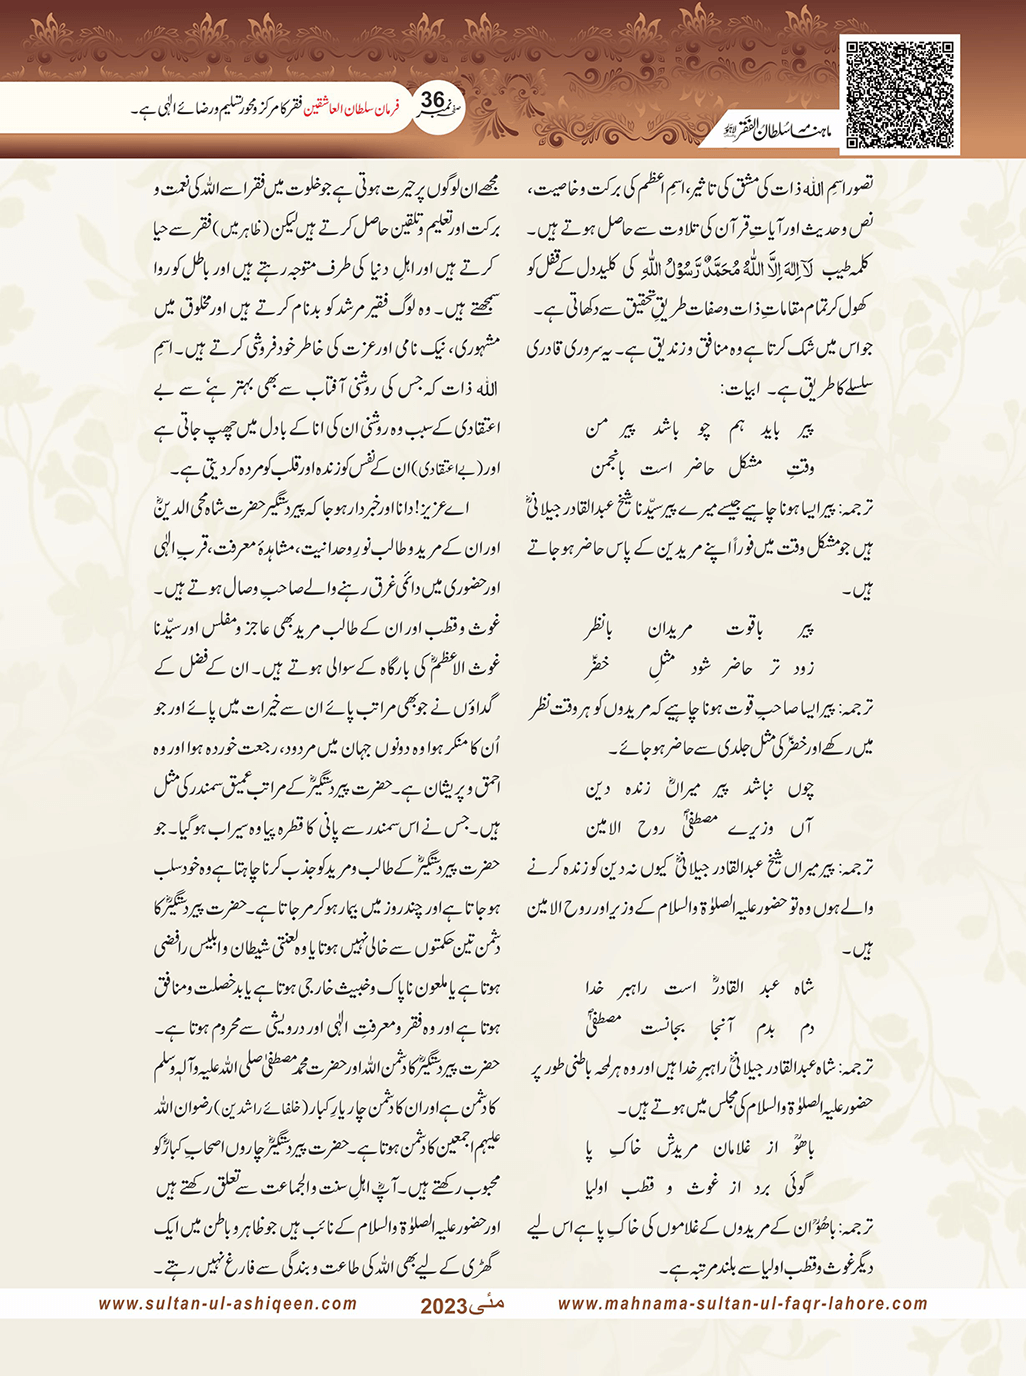 ماہنامہ سلطان الفقر لاہور
صفحہ نمبر 36
فرمان سلطان العاشقین فقر کا مرکز و محور تسلیم و رضائے الٰہی ہے۔
تصور اسمِ اللہ ذات کی مشق کی تاثیر، اسمِ اعظم کی برکت و خاصیت،
نص و حدیث اور آیاتِ قرآن کی تلاوت سے حاصل ہوتے ہیں۔
کلمہ طیب لَآ اِلٰہَ اِلَّا اللّٰہُ مُحَمَّدٌ رَّسُوْلُ اللّٰہِ کی کلید دل کے قفل کو
کھول کر تمام مقاماتِ ذات و صفات طریقِ تحقیق سے دکھاتی ہے۔
جو اس میں شک کرتا ہے وہ منافق و زندیق ہے۔ یہ سروری قادری
سلسلے کا طریق ہے۔ ابیات:
پیر باید ہم چو باشد پیر من
وقتِ مشکل حاضر است بانجمن
ترجمہ: پیر ایسا ہونا چاہیے جیسے میرے پیر سیّدنا شیخ عبدالقادر جیلانیؓ
ہیں جو مشکل وقت میں فوراً اپنے مریدین کے پاس حاضر ہو جاتے
ہیں۔
پیر باقوت مریدان بانظر
زود تر حاضر شود مثلِ خضرؑ
ترجمہ: پیر ایسا صاحبِ قوت ہونا چاہیے کہ مریدوں کو ہر وقت نظر
میں رکھے اور خضرؑ کی مثل جلدی سے حاضر ہو جائے۔
چوں نباشد پیر میراںؓ زندہ دین
آں وزیرے مصطفیؐ روح الامین
ترجمہ: پیر میراں شیخ عبدالقادر جیلانیؓ کیوں نہ دین کو زندہ کرنے
والے ہوں وہ تو حضور علیہ الصلوٰۃ والسلام کے وزیر اور روح الامین
ہیں۔
شاہ عبد القادرؓ است راہبر خدا
دم بدم آنجا بجانست مصطفیؐ
ترجمہ: شاہ عبدالقادر جیلانیؓ راہبرِ خدا ہیں اور وہ ہر لمحہ باطنی طور پر
حضور علیہ الصلوٰۃ والسلام کی مجلس میں ہوتے ہیں۔
باھوؒ از غلامان مریدش خاکِ پا
گوئی برد از غوث و قطب اولیا
ترجمہ: باھُوؒ ان کے مریدوں کے غلاموں کی خاکِ پا ہے اس لیے
دیگر غوث و قطب اولیا سے بلند مرتبہ ہے۔
مجھے ان لوگوں پر حیرت ہوتی ہے جو خلوت میں فقرا سے اللہ کی نعمت و
برکت اور تعلیم و تلقین حاصل کرتے ہیں لیکن (ظاہر میں) فقر سے حیا
کرتے ہیں اور اہلِ دنیا کی طرف متوجہ رہتے ہیں اور باطل کو روا
سمجھتے ہیں۔ وہ لوگ فقیر مرشد کو بدنام کرتے ہیں اور مخلوق میں
مشہوری، نیک نامی اور عزت کی خاطر خودفروشی کرتے ہیں۔ اسمِ
اللہ ذات کہ جس کی روشنی آفتاب سے بھی بہتر ہے‘ سے بے
اعتقادی کے سبب وہ روشنی ان کی انا کے بادل میں چھپ جاتی ہے
اور (بے اعتقادی) ان کے نفس کو زندہ اور قلب کو مردہ کر دیتی ہے۔
اے عزیز! دانا اور خبردار ہو جا کہ پیر دستگیر حضرت شاہ محی الدینؓ
اور ان کے مرید و طالب نورِ وحدانیت، مشاہدۂ معرفت، قربِ الٰہی
اور حضوری میں دائمی غرق رہنے والے صاحبِ وصال ہوتے ہیں۔
غوث و قطب اور ان کے طالب مرید بھی عاجز و مفلس اور سیّدنا
غوث الاعظمؓ کی بارگاہ کے سوالی ہوتے ہیں۔ ان کے فضل کے
گداؤں نے جو بھی مراتب پائے ان سے خیرات میں پائے اور جو
اُن کا منکر ہوا وہ دونوں جہان میں مردود، رجعت خوردہ ہوا اور وہ
احمق و پریشان ہے۔ حضرت پیر دستگیرؓ کے مراتب عمیق سمندر کی مثل
ہیں۔ جس نے اس سمندر سے پانی کا قطرہ پیا وہ سیراب ہو گیا۔ جو
حضرت پیر دستگیرؓ کے طالب و مرید کو جذب کرنا چاہتا ہے وہ خود سلب
ہو جاتا ہے اور چند روز میں بیمار ہو کر مر جاتا ہے۔ حضرت پیر دستگیرؓ کا
دشمن تین حکمتوں سے خالی نہیں ہوتا یا وہ لعنتی شیطان و ابلیس رافضی
ہوتا ہے یا ملعون ناپاک و خبیث خارجی ہوتا ہے یا بدخصلت و منافق
ہوتا ہے اور وہ فقر و معرفتِ الٰہی اور درویشی سے محروم ہوتا ہے۔
حضرت پیر دستگیرؓ کا دشمن اللہ اور حضرت محمد مصطفیٰ صلی اللہ علیہ وآلہٖ وسلم
کا دشمن ہے اور ان کا دشمن چار یارِ کبار (خلفائے راشدین) رضوان اللہ
علیہم اجمعین کا دشمن ہوتا ہے۔ حضرت پیر دستگیرؓ چاروں اصحابِ کبارؓ کو
محبوب رکھتے ہیں۔ آپؓ اہلِ سنت والجماعت سے تعلق رکھتے ہیں
اور حضور علیہ الصلوٰۃ والسلام کے نائب ہیں جو ظاہر و باطن میں ایک
گھڑی کے لیے بھی اللہ کی طاعت و بندگی سے فارغ نہیں رہتے۔
www.sultan-ul-ashiqeen.com مئی 2023 www.mahnama-sultan-ul-faqr-lahore.com